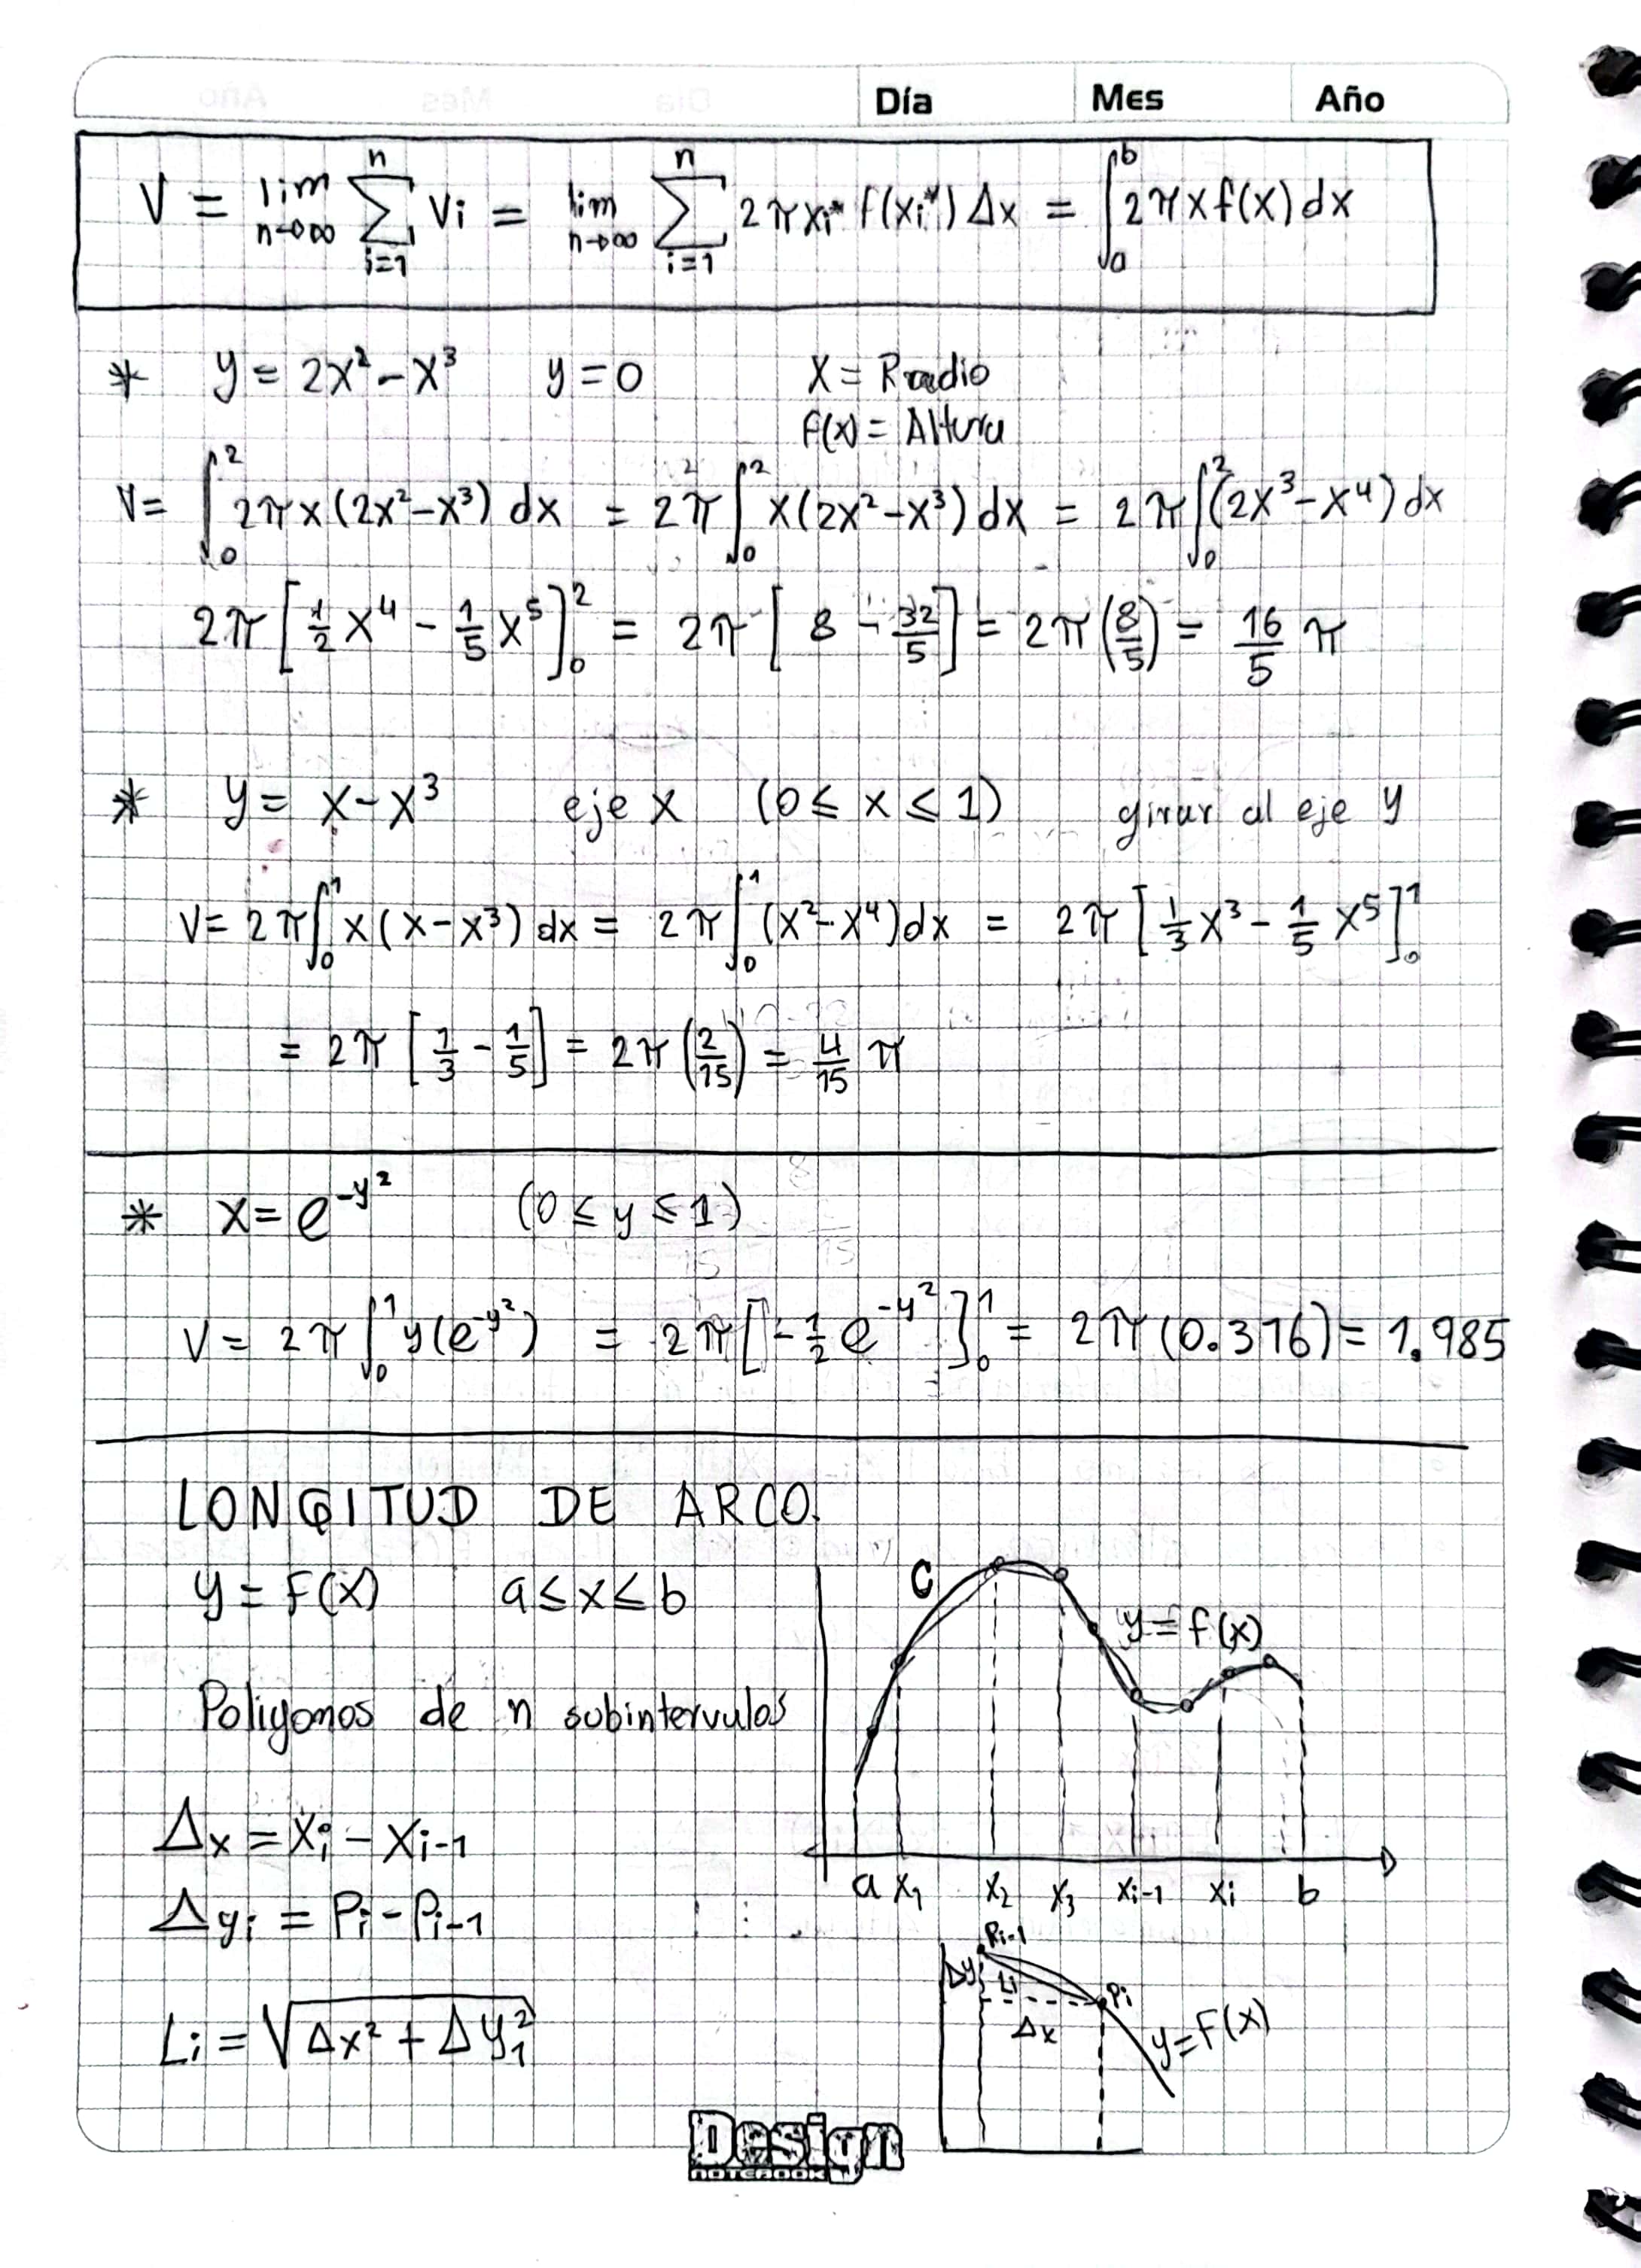 Día Mes Año
V = lim n→∞ ∑ i=1 n Vi = lim n→∞ ∑ i=1 n 2πxi* f(xi*) Δx = ∫ a b 2πxf(x)dx
* y = 2x² - x³ y = 0 x = Radio
f(x) = Altura
V = ∫ 0 2 2πx(2x²-x³) dx = 2π ∫ 0 2 x(2x²-x³)dx = 2π ∫ 0 2 (2x³-x⁴)dx
2π [1/2 x⁴ - 1/5 x⁵] 0 2 = 2π [8 - 32/5] = 2π (8/5) = 16/5 π
* y = x - x³ eje x (0 ≤ x ≤ 1) girar al eje y
V = 2π ∫ 0 1 x(x-x³) dx = 2π ∫ 0 1 (x²-x⁴)dx = 2π [1/3 x³ - 1/5 x⁵] 0 1
= 2π [1/3 - 1/5] = 2π (2/15) = 4/15 π
* x = e^-y² (0 ≤ y ≤ 1)
V = 2π ∫ 0 1 y(e^-y²) = 2π [-1/2 e^-y²] 0 1 = 2π(0.316) = 1.985
LONGITUD DE ARCO.
y = F(x) a ≤ x ≤ b
C
y = f(x)
Poligonos de n subintervalos
Δx = xi - xi-1
a x1 x2 x3 xi-1 xi b
Δyi = Pi - Pi-1
Pi-1
Δy Li Pi
Δx
y=F(x)
Li = √Δx² + Δy1²
Design
NOTEBOOK